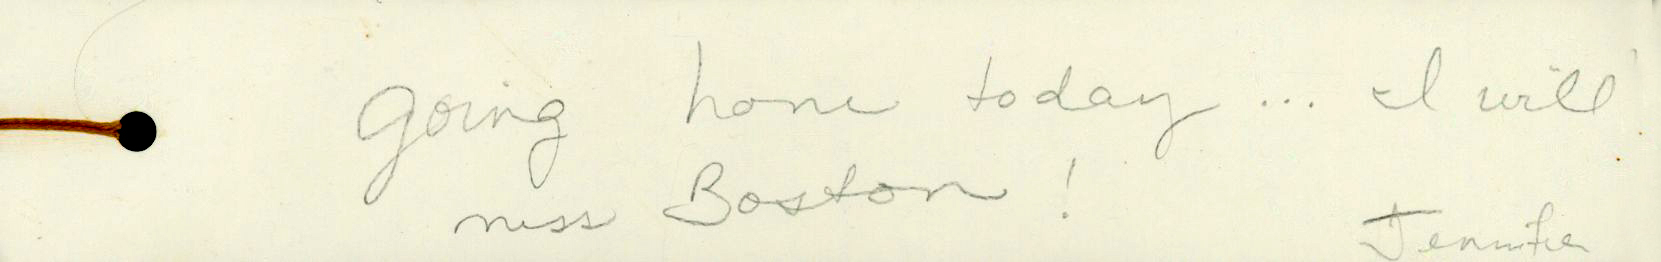 Going home today... I will
miss Boston!
Jennifer